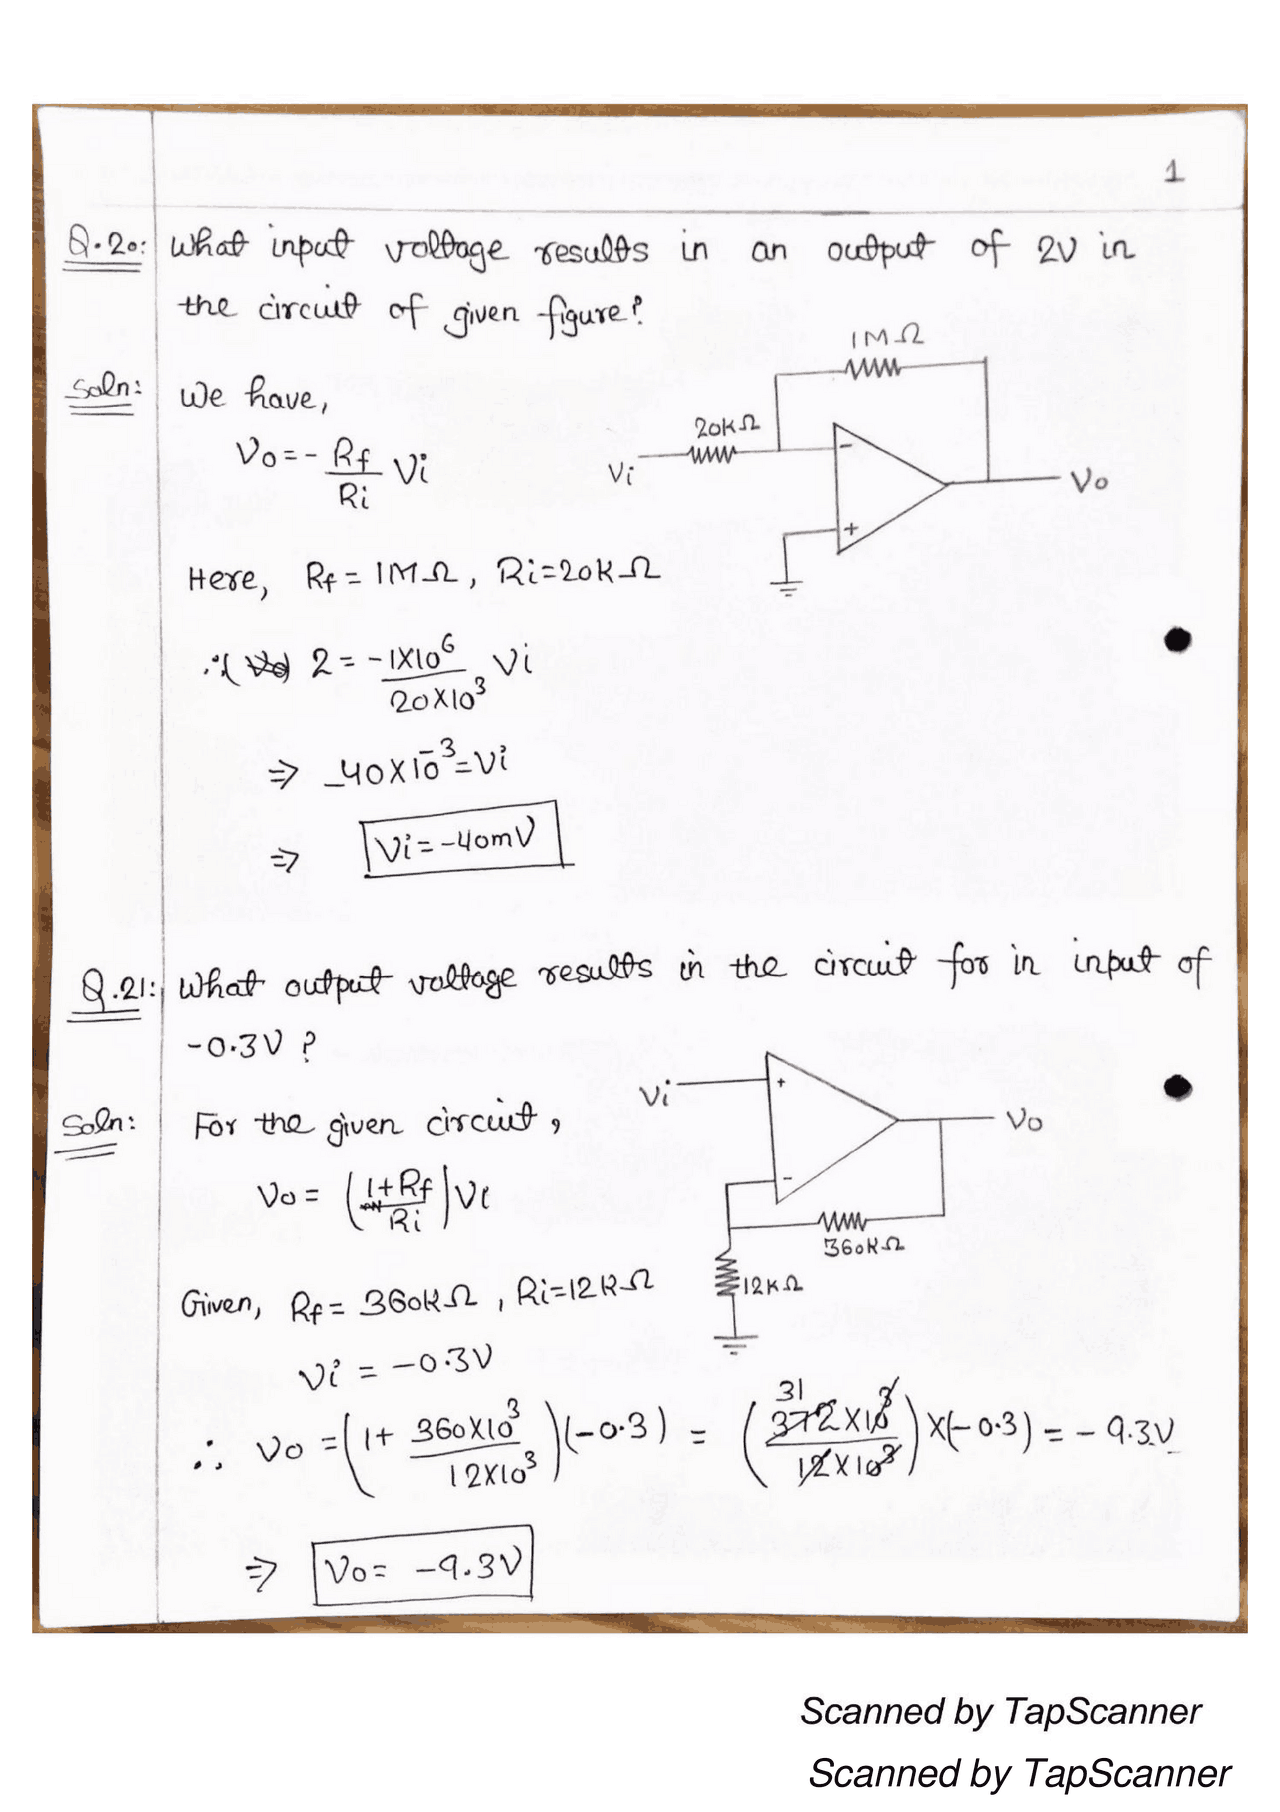 1
Q.20: What input voltage results in an output of 2V in
the circuit of given figure?
Soln: We have,
Vo = - Rf/Ri Vi
1MΩ
20KΩ
Vi
-
+
Vo
Here, Rf = 1MΩ, Ri=20KΩ
∴ 2 = -1X10^6/20X10^3 Vi
=> -40X10^-3 = Vi
=> Vi = -40mV
Q.21: What output voltage results in the circuit for in input of
-0.3V ?
Soln: For the given circuit,
Vi
+
-
Vo
360KΩ
12KΩ
Vo = (1+Rf/Ri)Vi
Given, Rf = 360KΩ, Ri=12KΩ
Vi = -0.3V
∴ Vo = (1+ 360X10^3/12X10^3)(-0.3) = (372X10^3/12X10^3)X(-0.3) = -9.3V
31
=> Vo = -9.3V
Scanned by TapScanner
Scanned by TapScanner